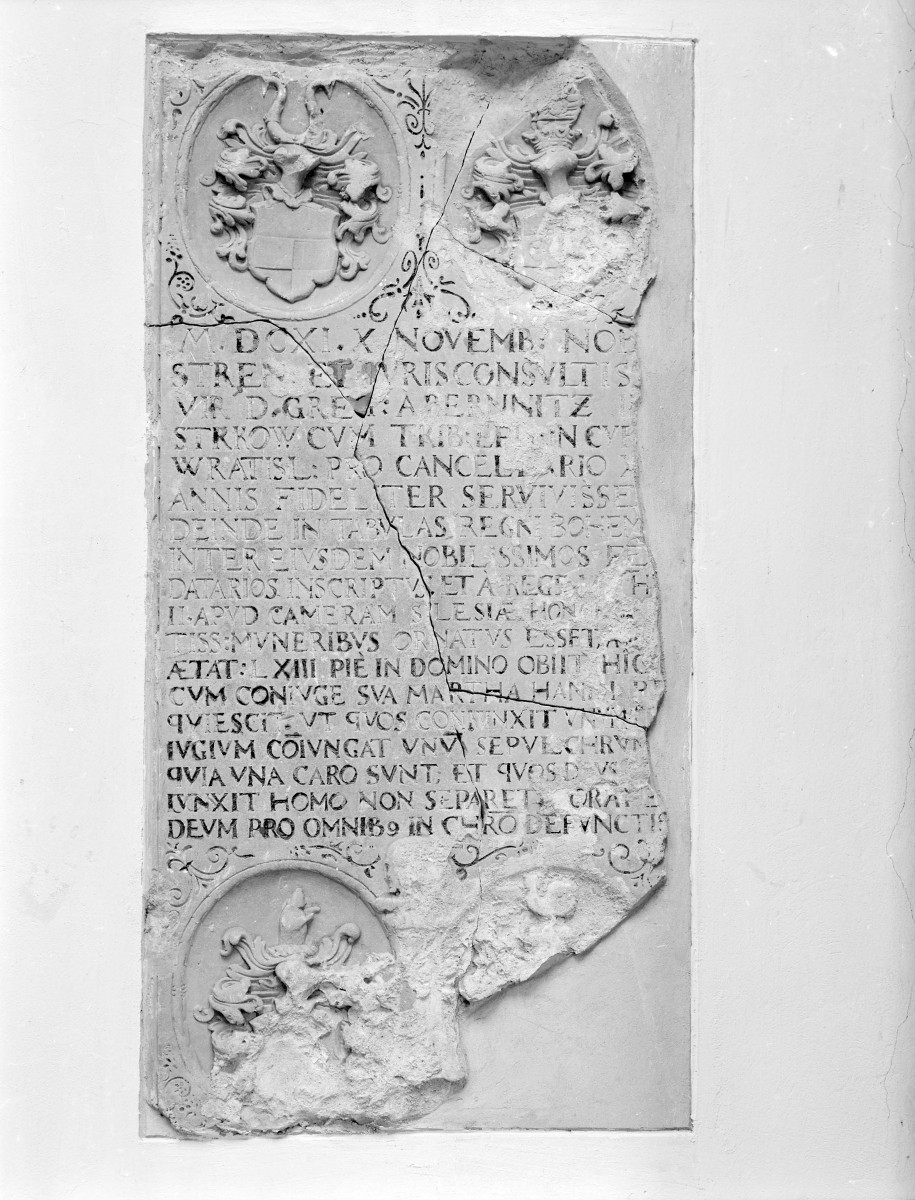 M. DCXI. X NOVEMB: NOB
STREN: ET IVRISCONSVLTIS
VIR D. GREG: A BERNNITZ
STRKOW CVM TRIB: EPI: IN CVR
WRATISL: PRO CANCELLARIO
ANNIS FIDELITER SERVIVISSE
DEINDE IN TABVLAS REGNI BOHEM
INTER EIVSDEM NOBILISSIMOS
DATARIOS INSCRIPTVS: ET A REGE
II. APVD CAMERAM SILESIÆ HONO
TISS: MVNERIBVS ORNATVS ESSET,
ÆTAT: LXIII PIÈ IN DOMINO OBIIT HIC
CVM CONIVGE SVA MARTHA
QVIESCIT: VT QVOS CONIVNXIT VNVM
IVGIVM COIVNGAT VNV SEPVLCHRVM
QVIA VNA CARO SVNT, ET QVOS DEVS
IVNXIT HOMO NON SEPARET. ORATE
DEVM PRO OMNIB9 IN CHRO DEFVNCTIS